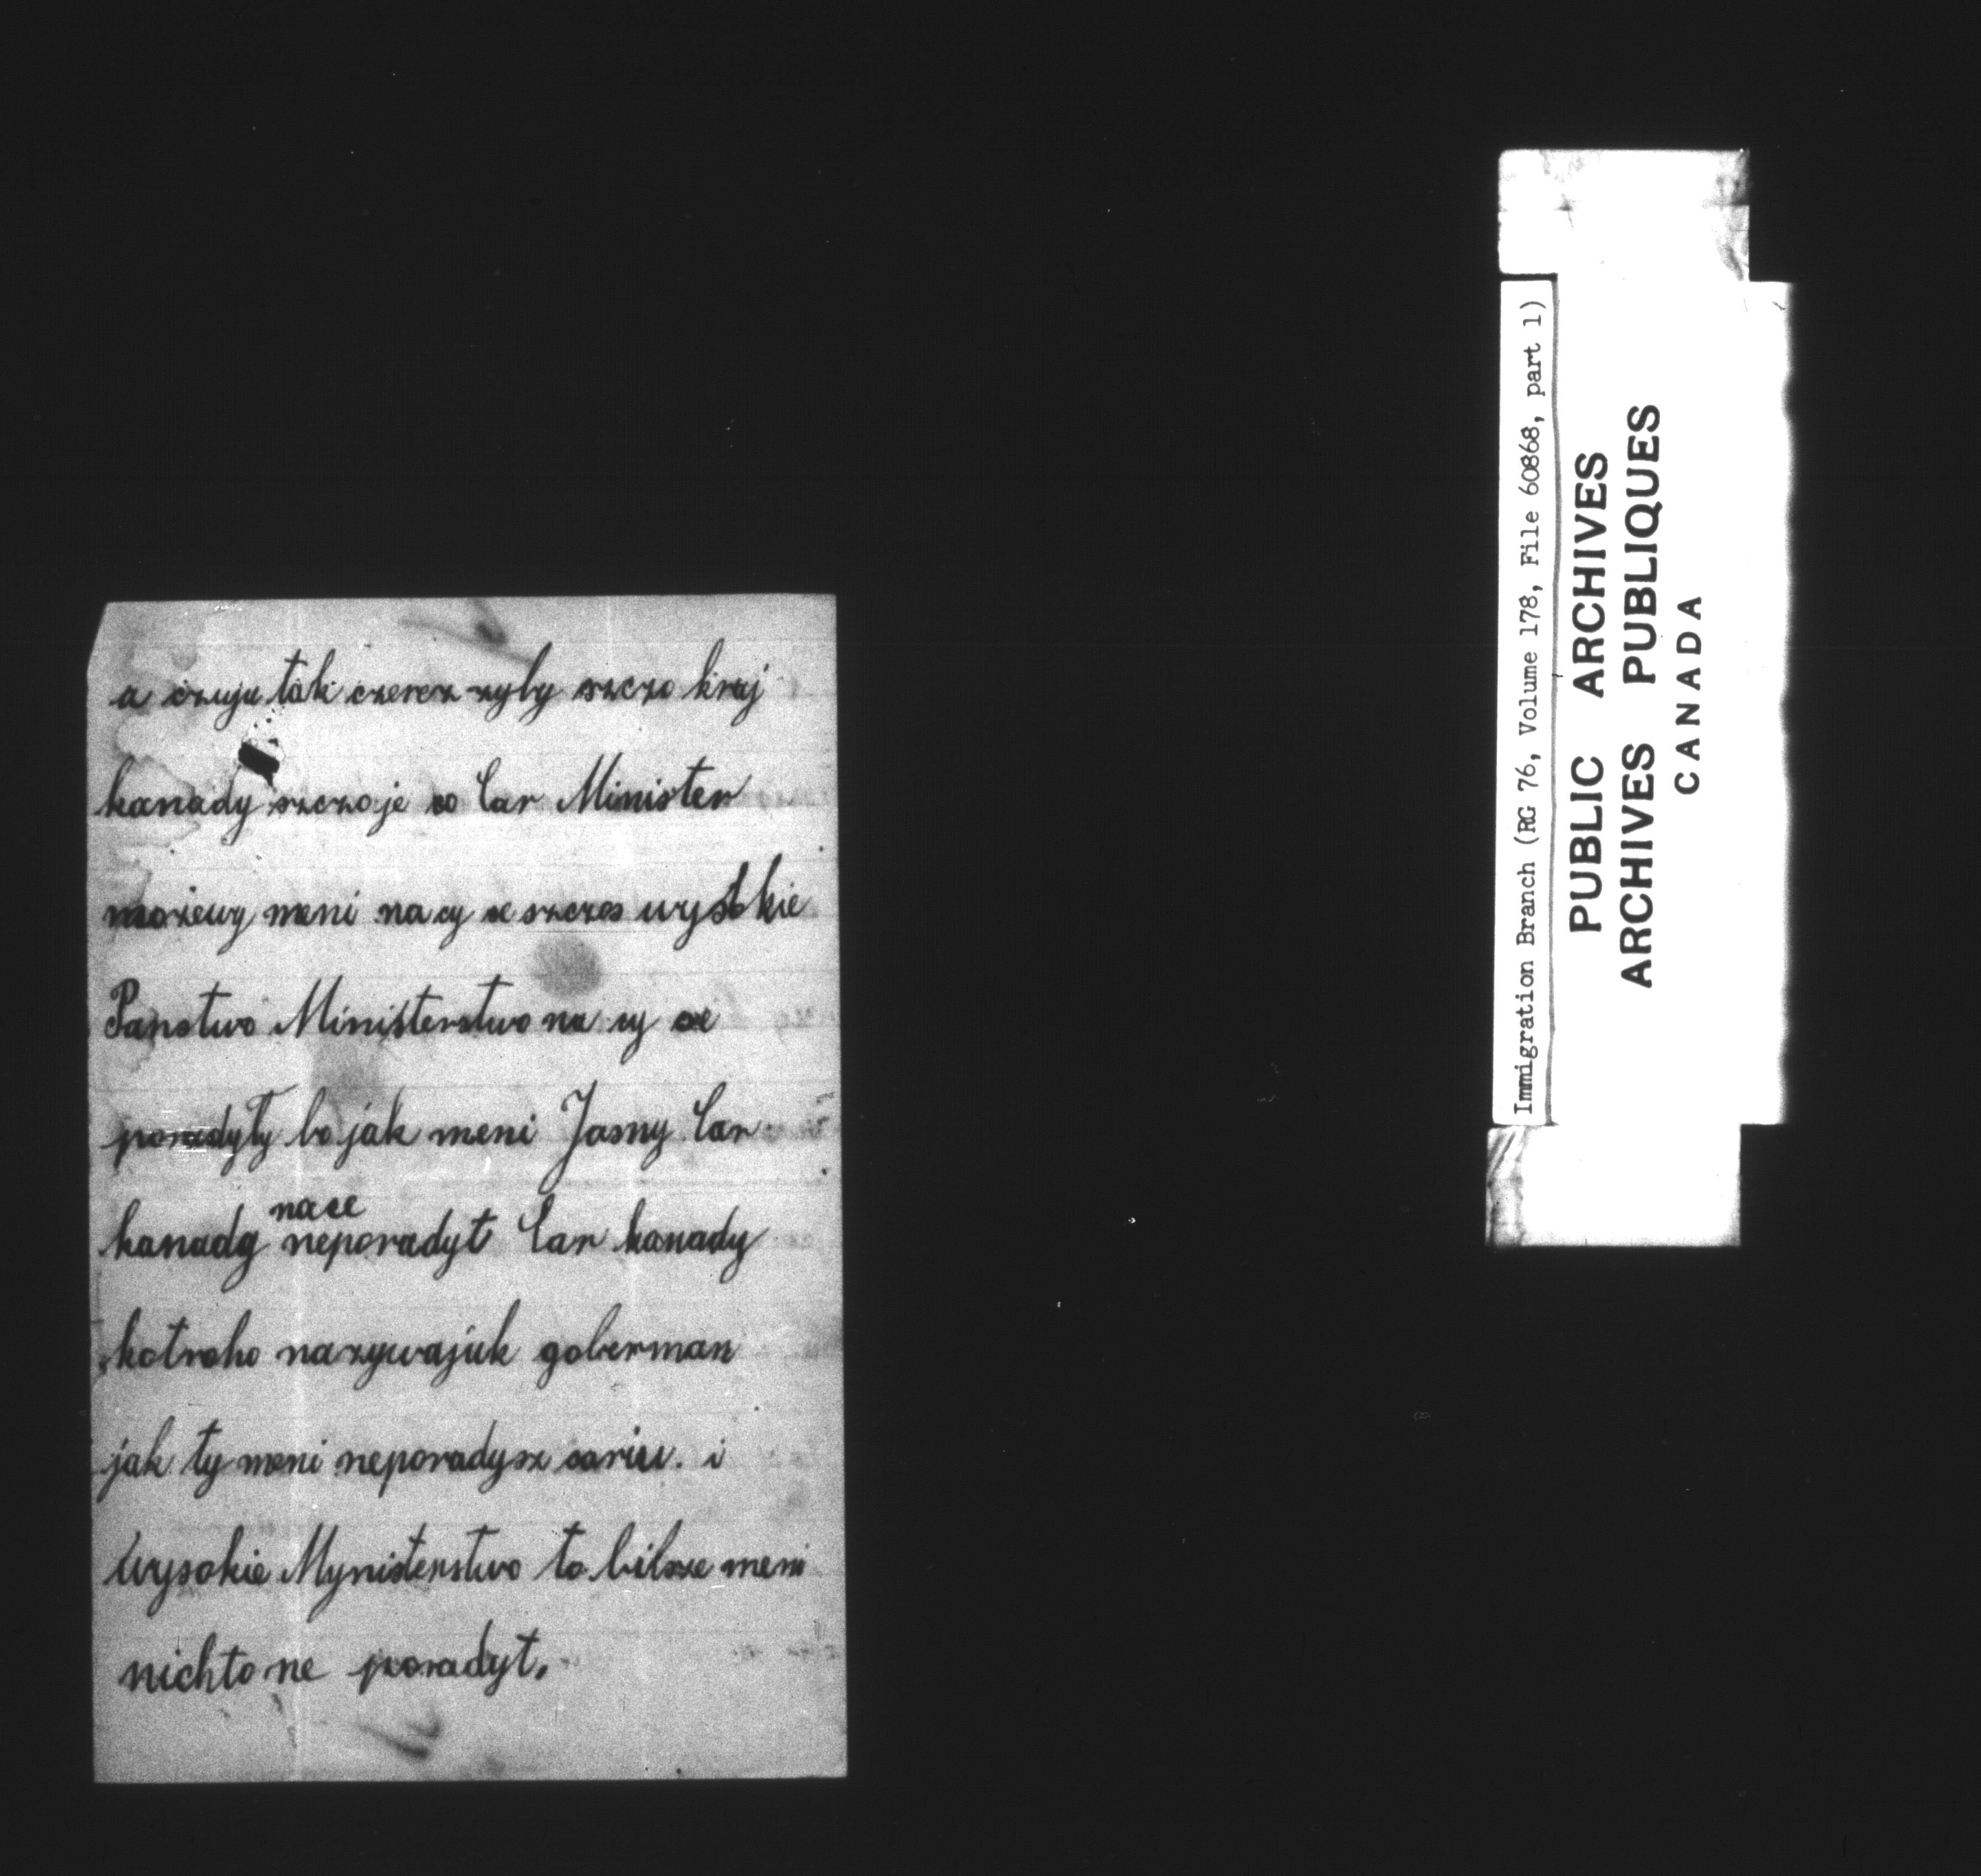 a czuju tak czerez zyby szczo kraj
kanady szczo je co Car Minister
możewy meni na cy se szczos wysokie
Panstwo Ministerstwo na cy se
poradyły bo jak meni Jasny Car
nace
kanady neporadyt Car kanady
kotroho nazywajuk goberman
jak ty meni neporadysz cariu. i
Wysokie Mynisterstwo to bilsze meni
nichto ne poradyt.
Immigration Branch (RG 76, Volume 178, File 60868, part 1)
PUBLIC ARCHIVES
ARCHIVES PUBLIQUES
CANADA